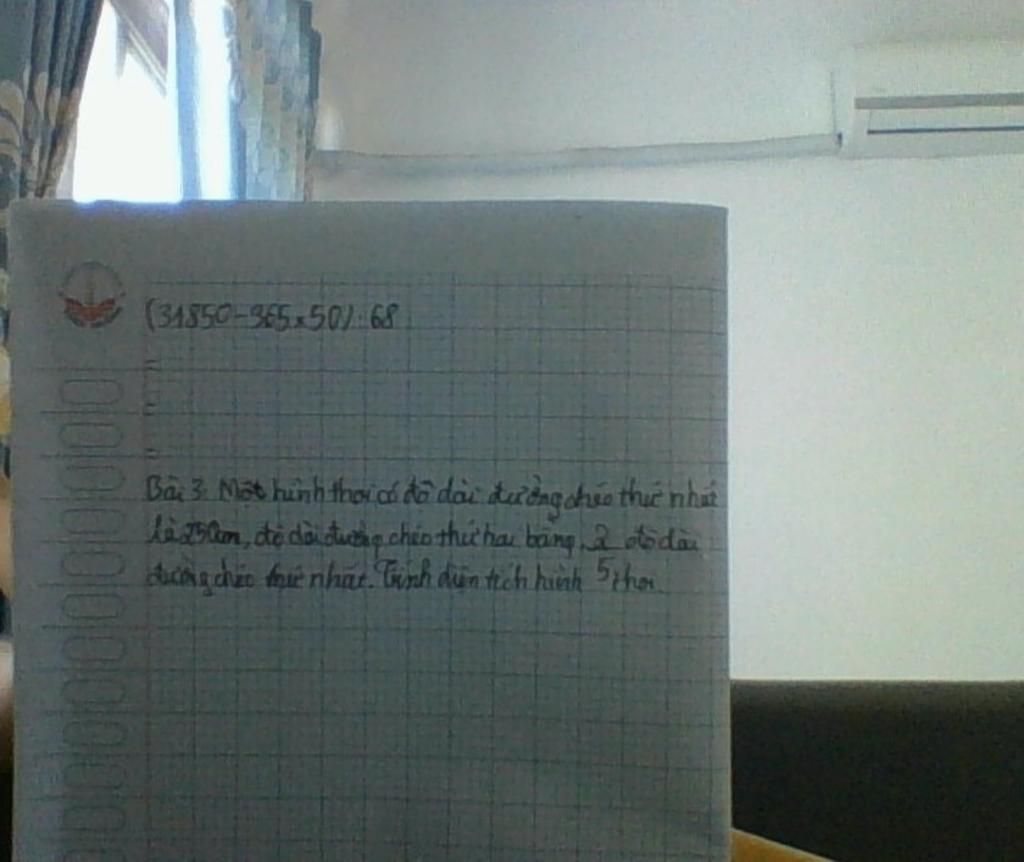 (31850-365x50):68
=
=
=
Bài 3: Một hình thoi có độ dài đường chéo thứ nhất
là 250cm, độ dài đường chéo thứ hai bằng 2/5 độ dài
đường chéo thứ nhất. Tính diện tích hình thoi.